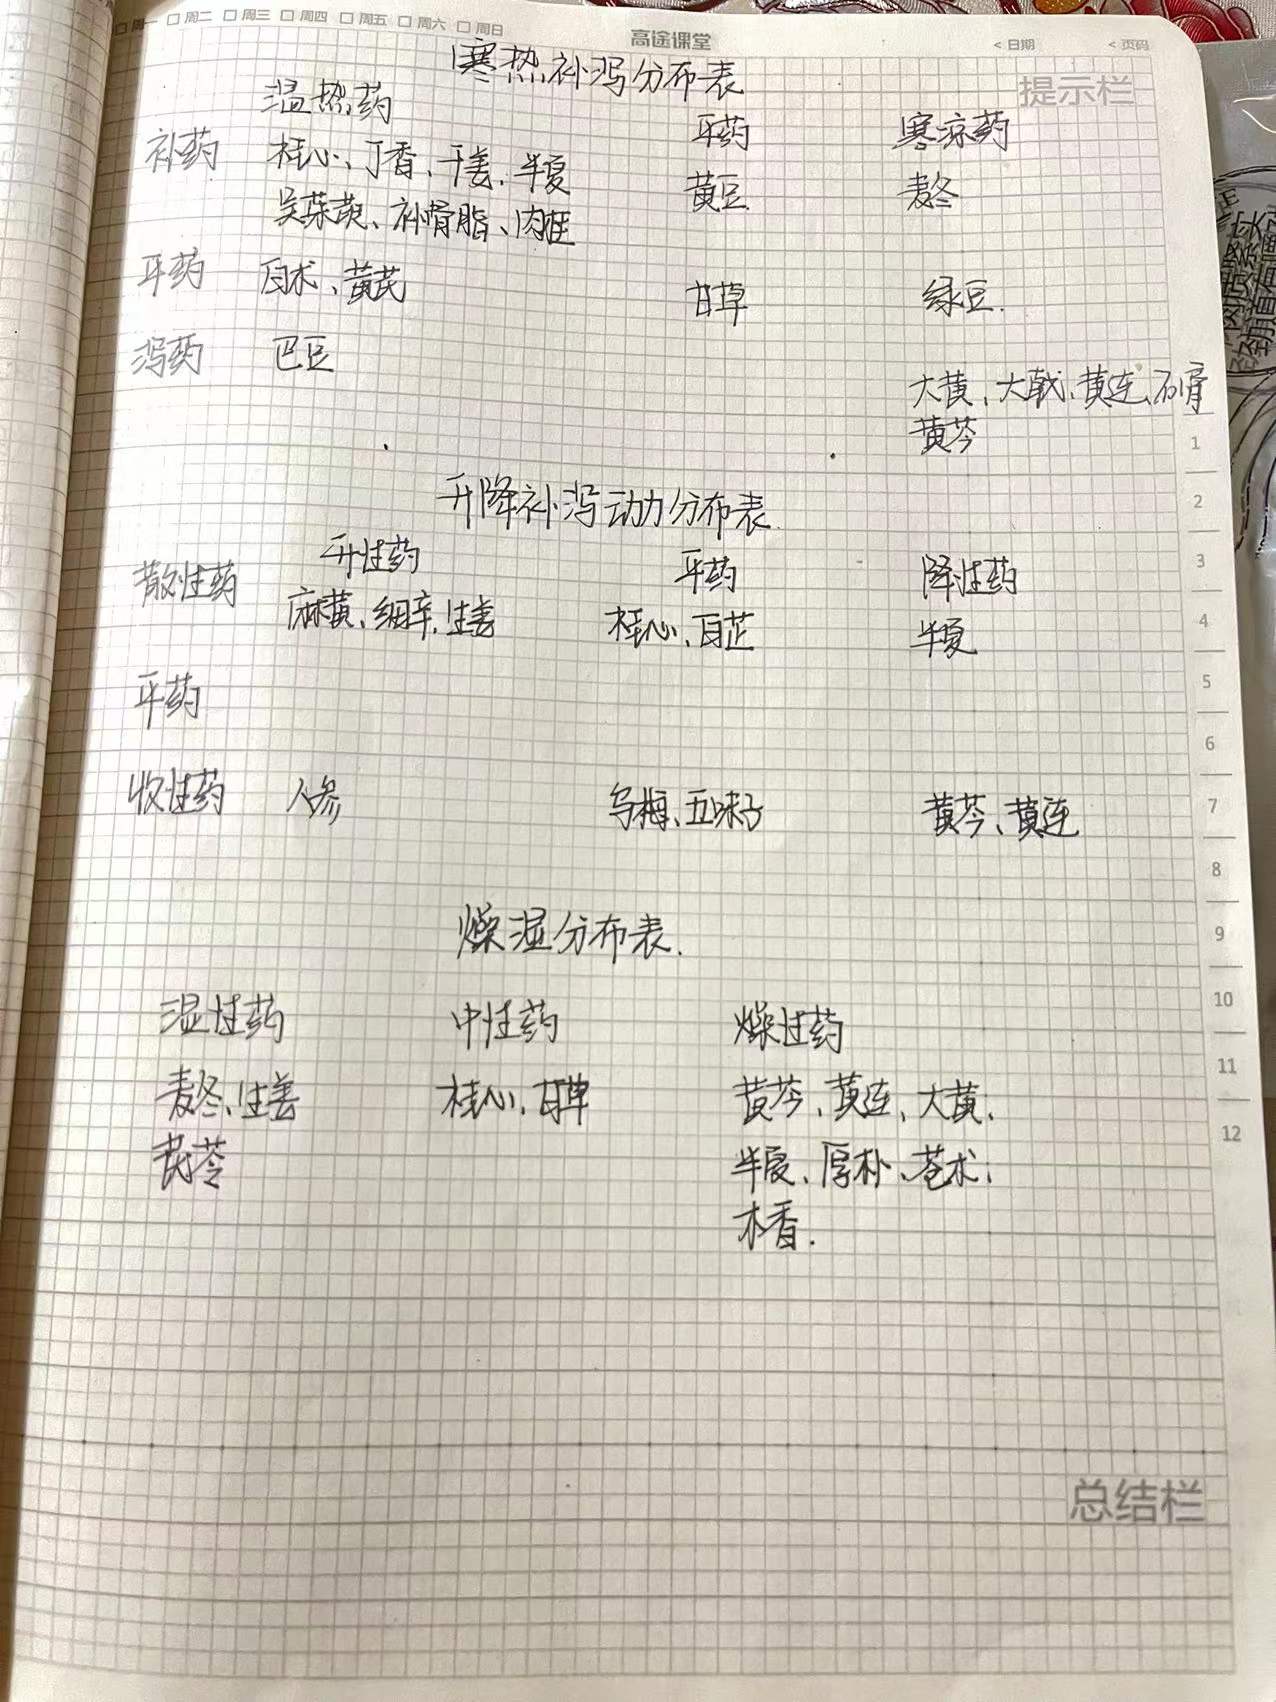 周一 周二 周三 周四 周五 周六 周日 高途课堂 < 日期 < 页码
寒热补泻分布表
提示栏
温热药 平药 寒凉药
补药 桂心、丁香、干姜、半夏 黄豆 麦冬
吴茱萸、补骨脂、肉桂
平药 白术、黄芪 甘草 绿豆.
泻药 巴豆 大黄、大戟、黄连、石膏
黄芩
1
升降补泻动力分布表
2
升性药 平药 降性药
3
散性药 麻黄、细辛、生姜 桂心、白芷 半夏
4
平药
5
6
收性药 人参 乌梅、五味子 黄芩、黄连
7
8
燥湿分布表.
9
湿性药 中性药 燥性药
10
麦冬、生姜 桂心、甘草 黄芩、黄连、大黄、
11
茯苓 半夏、厚朴、苍术、
12
木香.
总结栏